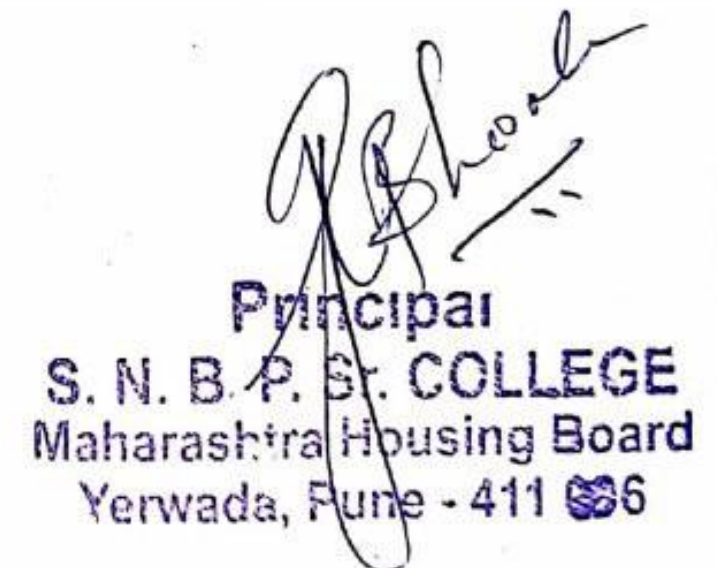 Principal
S. N. B. P. Sr. COLLEGE
Maharashtra Housing Board
Yerwada, Pune - 411 006